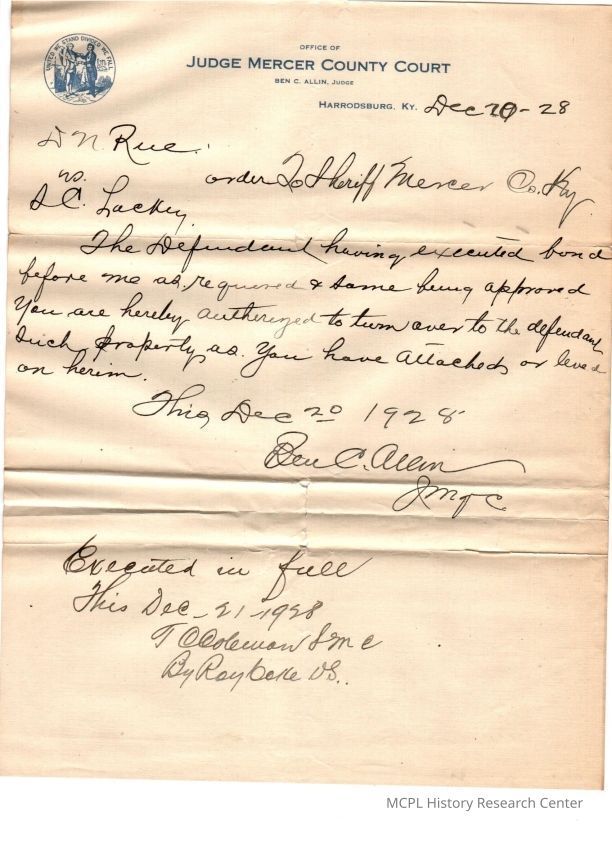 UNITED WE STAND DIVIDED WE FALL
OFFICE OF
JUDGE MERCER COUNTY COURT
BEN C. ALLIN, JUDGE
HARRODSBURG, KY. Dec 20 - 28
D N Rue.
vs. order To Sheriff Mercer Co. Ky
S C. Lackey
The Defendant having executed bond
before me as required & same being approved
You are hereby autherized to turn over to the defendant
such property as You have attached or leved
on herim.
This Dec 20 1928
Ben C. Allin
J M C
Executed in full
This Dec - 21 - 1928
T C Coleman S M C
By Ray D.S.
MCPL History Research Center